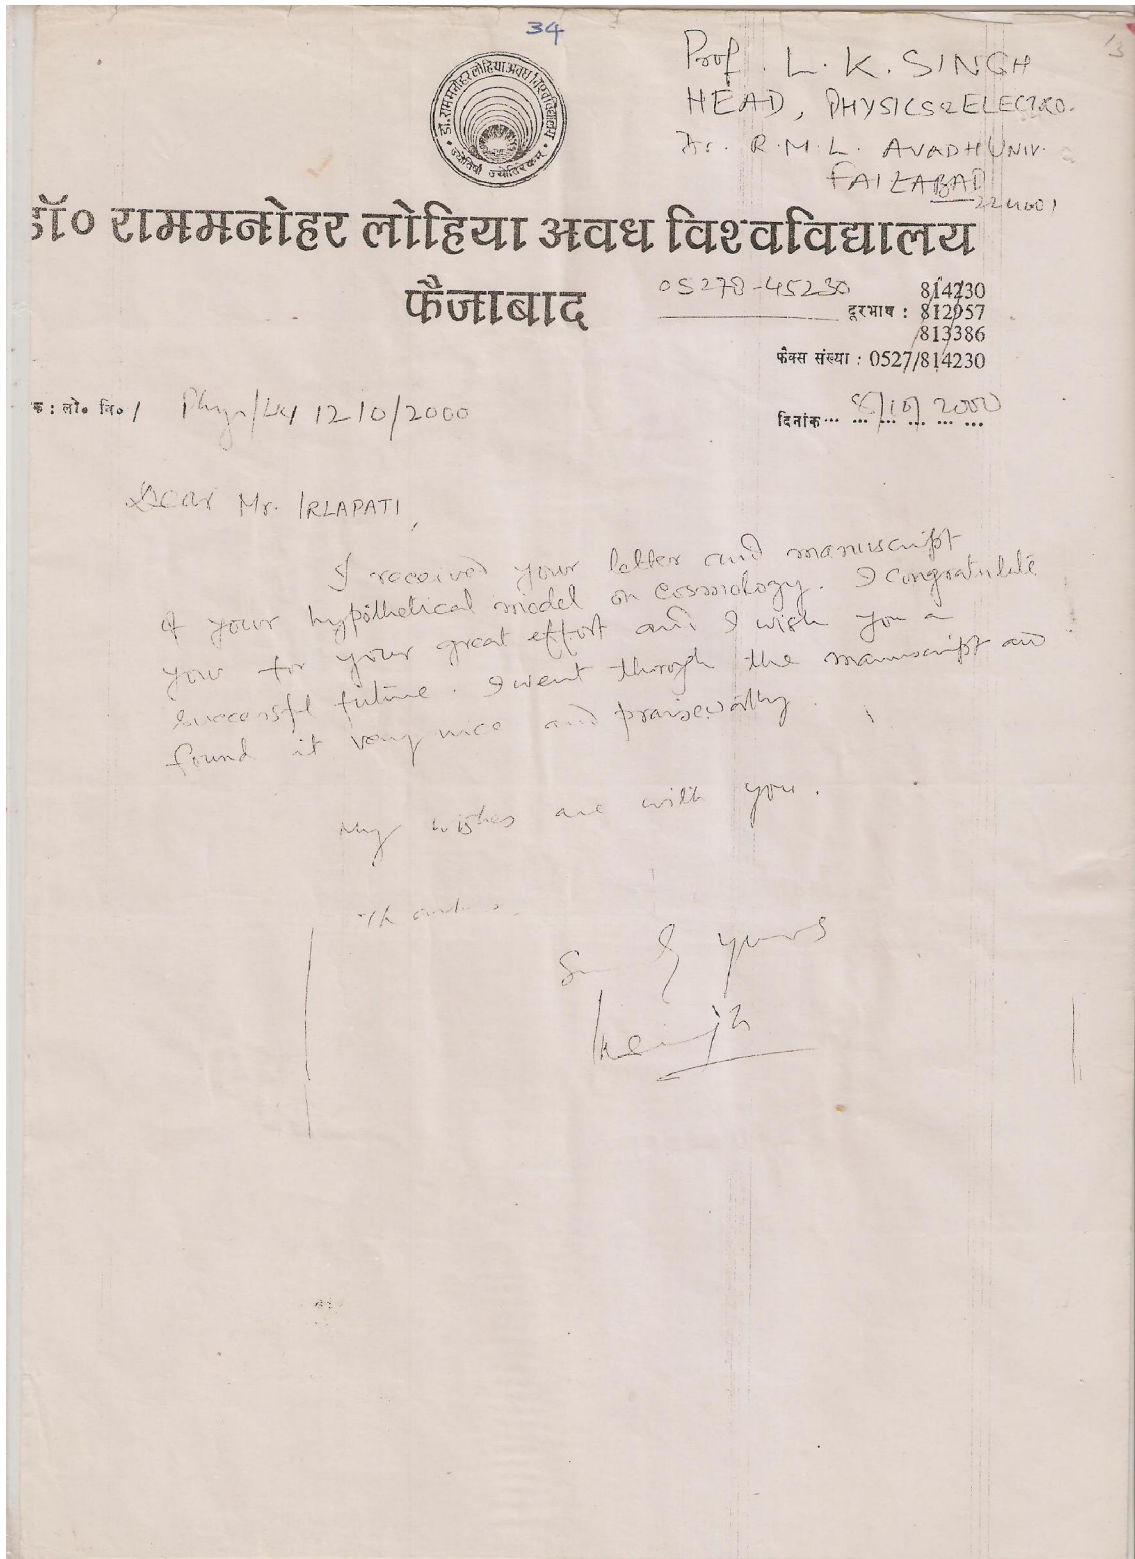 34
13
Prof. L. K. SINGH
HEAD, PHYSICS & ELECTRO.
Dr. R. M. L. AVADH UNIV.
FAIZABAD
224001
डा. राम मनोहर लोहिया अवध विश्वविद्यालय
डॉ० राममनोहर लोहिया अवध विश्वविद्यालय
फैजाबाद
05278-45230
814230
दूरभाष : 812957
813386
फैक्स संख्या : 0527/814230
क : लो० वि० / 12 10/2000
दिनांक /10/2000
Dear Mr. IRLAPATI,
I received your letter and manuscript
of your hypothetical model on cosmology. I congratulate
you for your great effort and I wish you a
successful future. I went through the manuscript and
found it very nice and praiseworthy.
My wishes are with you.
yours